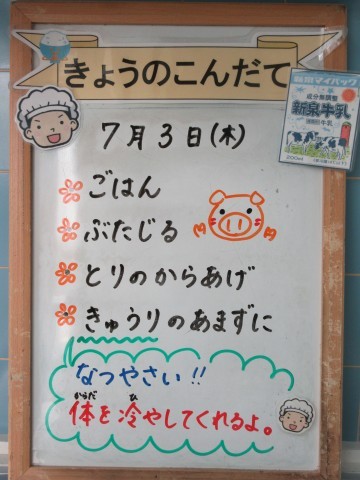 きょうのこんだて
7月3日(木)
ごはん
ぶたじる
とりのからあげ
きゅうりのあまずに
なつやさい!!
体を冷やしてくれるよ。
からだ
ひ
成分無調整
新泉牛乳
牛乳
200ml